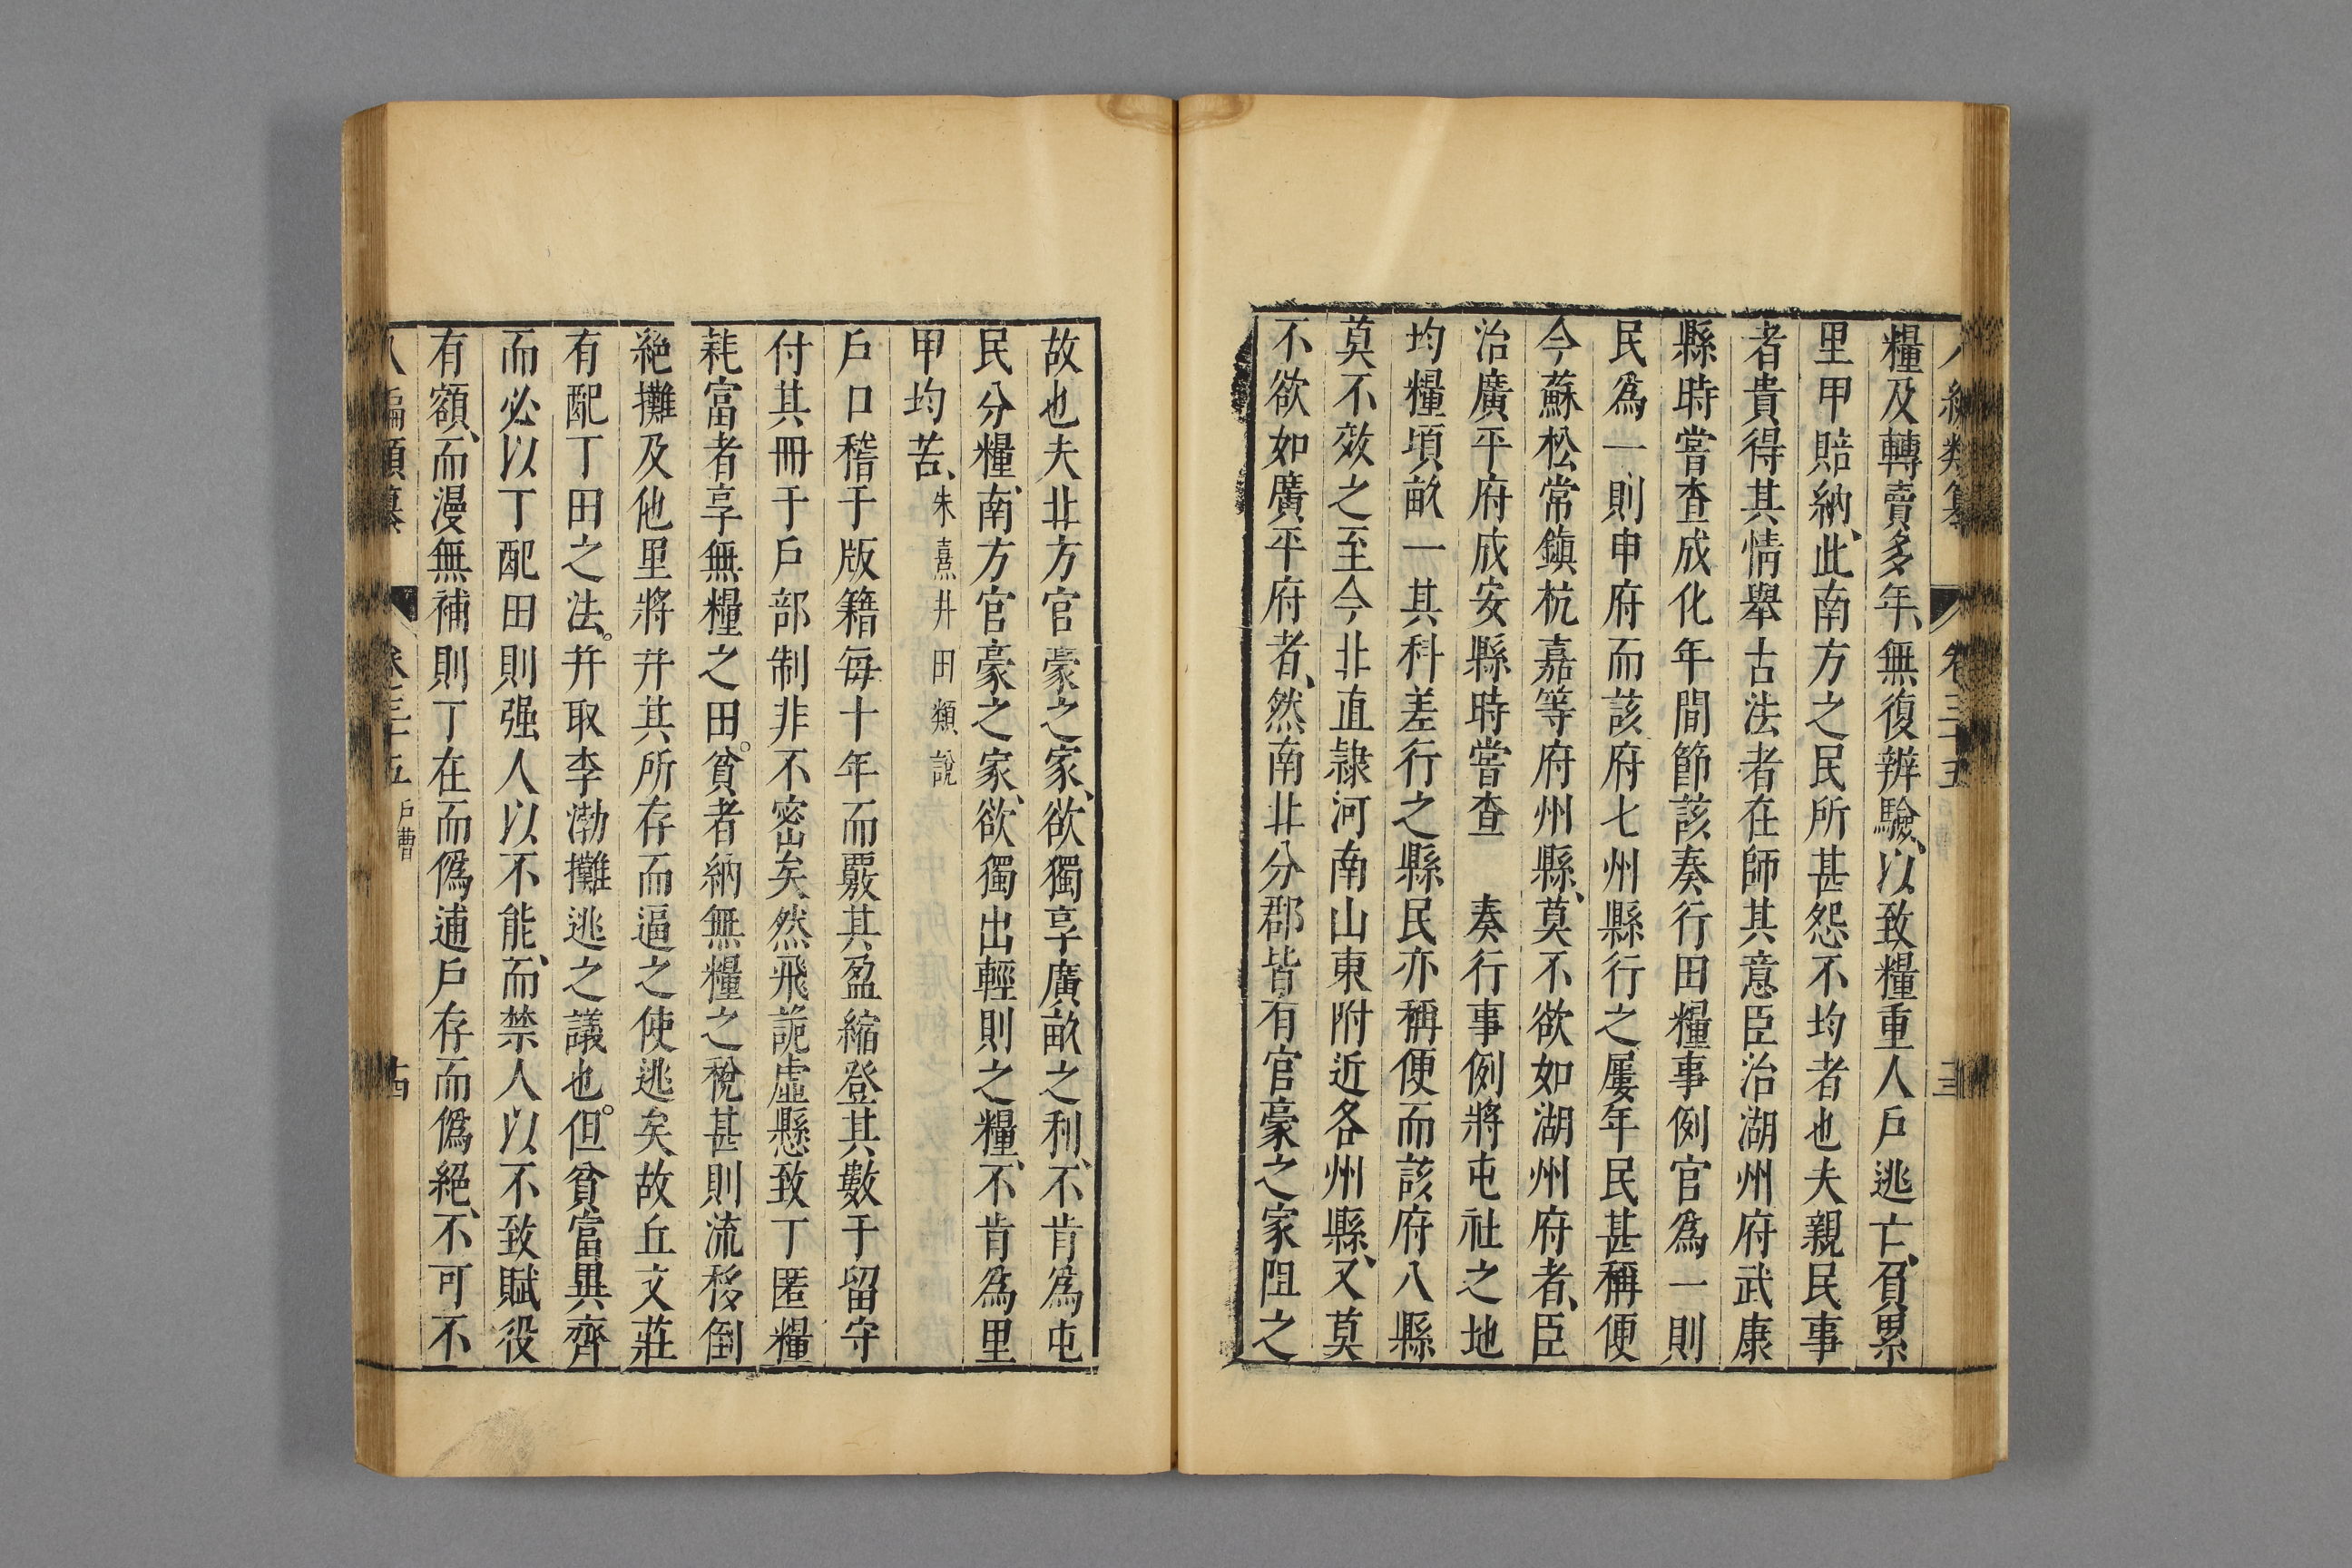 糧及轉賣多年、無復辨驗、以致糧重人戶逃亡、負累
里甲賠納、此南方之民所甚怨不均者也夫親民事
者貴得其情舉古法者在師其意臣治湖州府武康
縣時嘗查成化年間節該奏行田糧事例官爲一則
民爲一則申府而該府七州縣行之屢年民甚稱便
今蘇松常鎮杭嘉等府州縣、莫不欲如湖州府者、臣
治廣平府成安縣時嘗查 奏行事例將屯社之地
均糧頃畝一其科差行之縣民亦稱便而該府八縣
莫不效之至今北直隸河南山東附近各州縣、又莫
不欲如廣平府者、然南北分郡皆有官豪之家阻之
故也夫北方官豪之家、欲獨享廣畝之利、不肯爲屯
民分糧、南方官豪之家、欲獨出輕則之糧、不肯爲里
甲均苦、朱熹井田類說
戶口稽于版籍每十年而覈其盈縮登其數于留守
付其冊于戶部制非不密矣然飛詭虛懸致丁匿糧
耗富者享無糧之田。貧者納無糧之稅甚則流移倒
絕攤及他里將并其所存而逼之使逃矣故丘文莊
有配丁田之法。并取李渤攤逃之議也。但貧富異齊
而必以丁配田則强人以不能、而禁人以不致賦役
有額、而漫無補則丁在而僞逋戶存而僞絕、不可不